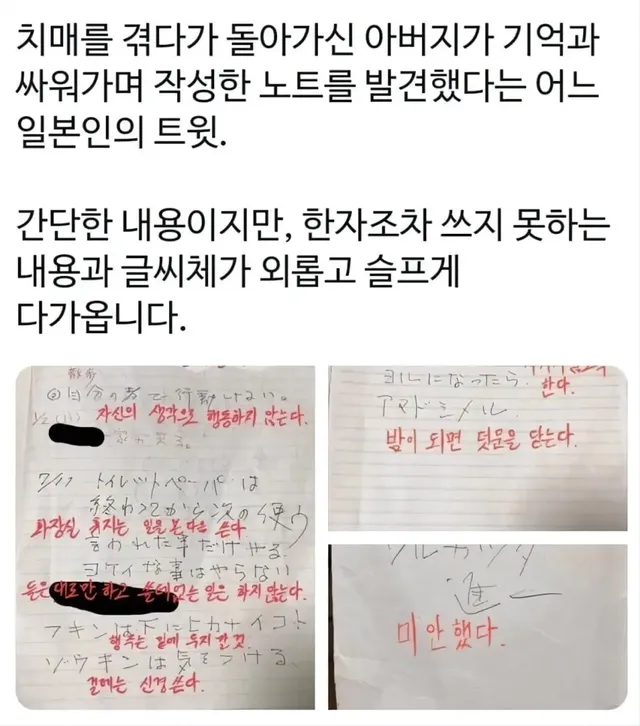 치매를 겪다가 돌아가신 아버지가 기억과
싸워가며 작성한 노트를 발견했다는 어느
일본인의 트윗.
간단한 내용이지만, 한자조차 쓰지 못하는
내용과 글씨체가 외롭고 슬프게
다가옵니다.
自分の考で行動しない。
자신의 생각으로 행동하지 않는다.
7/17 トイレットペーパーは
終わってから次の便ウ
화장실 휴지는 일을 본 다음 쓴다
言われた事だけやる
ヨケイな事はやらない
듣은 대로만 하고 쓸데없는 일은 하지 않는다.
フキンは下に
행주는 밑에 두지 말 것.
ゾウキンは気をつける
걸레는 신경쓴다.
ヨルになったら
한다.
アマドシメル
밤이 되면 덧문을 닫는다.
進一
미안했다.